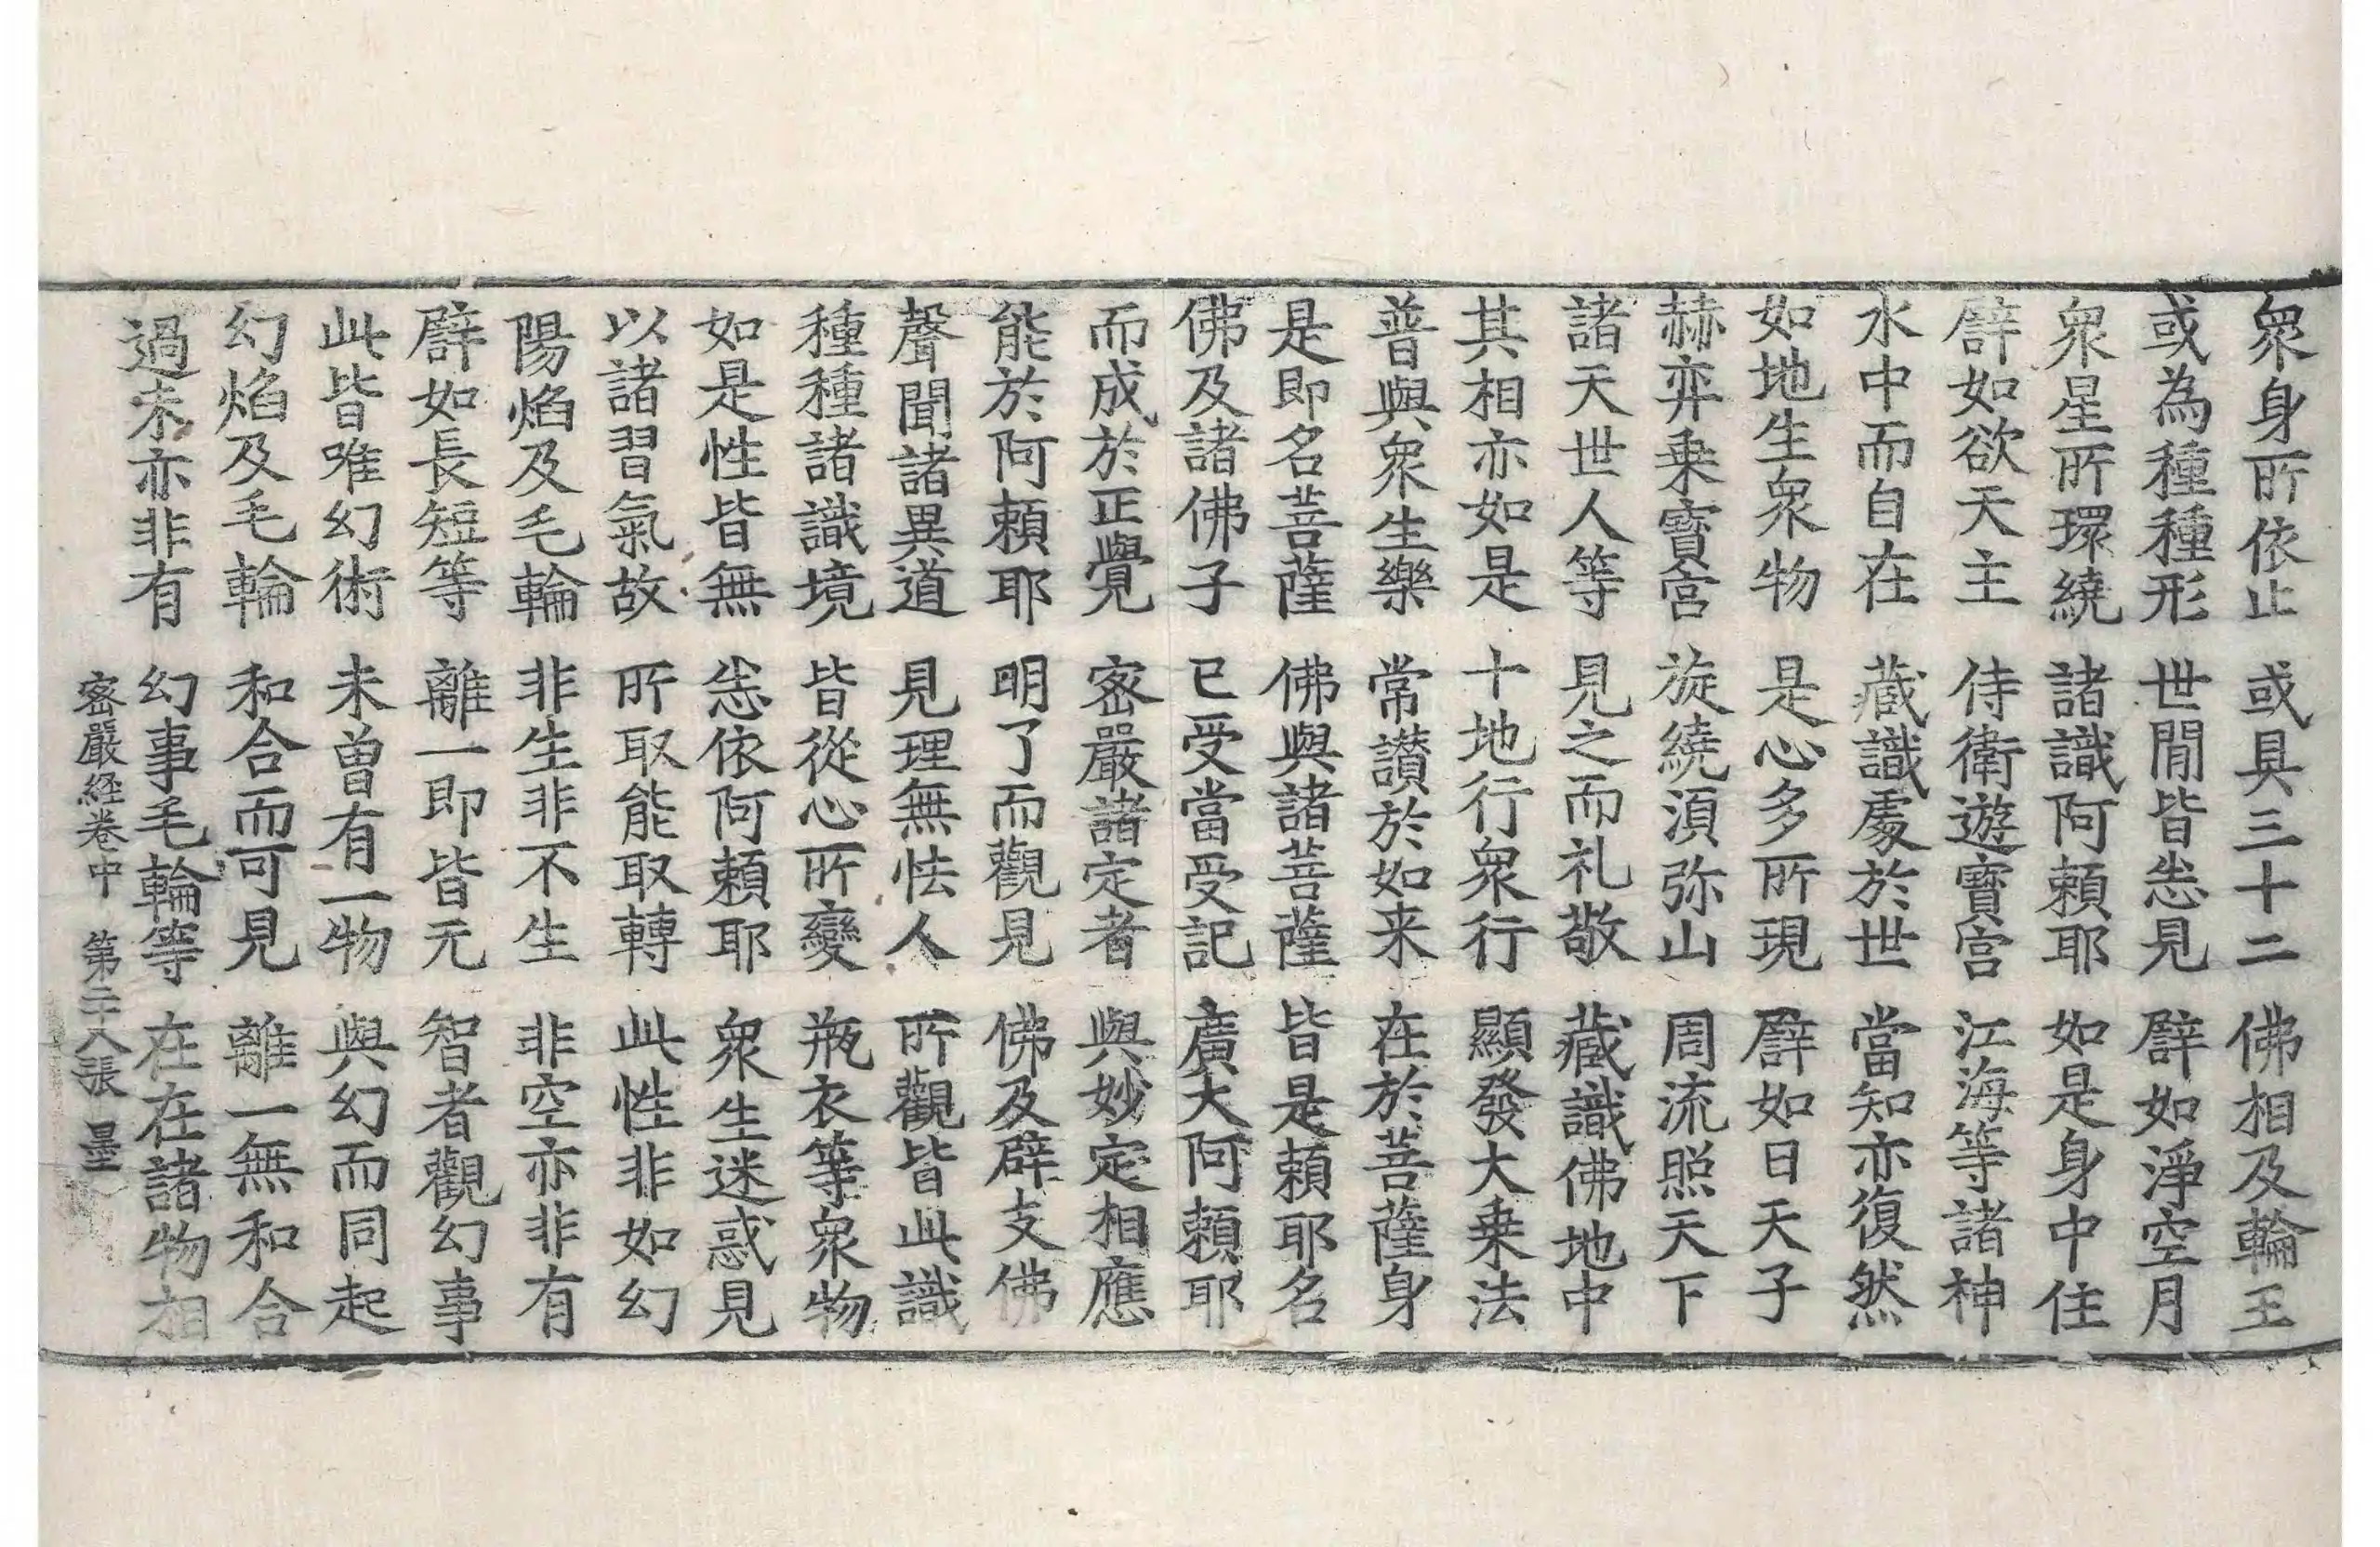 衆身所依止　或具三十二　佛相及輪王
或為種種形　世間皆悉見　譬如淨空月
衆星所環繞　諸識阿賴耶　如是身中住
譬如欲天主　侍衛遊寶宫　江海等諸神
水中而自在　藏識處於世　當知亦復然
如地生衆物　是心多所現　譬如日天子
赫弈乗寶宫　旋繞湏弥山　周流照天下
諸天世人等　見之而礼敬　藏識佛地中
其相亦如是　十地行衆行　顯發大乗法
普與衆生樂　常讃於如来　在於菩薩身
是即名菩薩　佛與諸菩薩　皆是賴耶名
佛及諸佛子　已受當受記　廣大阿賴耶
而成於正覺　密嚴諸定者　與妙定相應
能於阿賴耶　明了而觀見　佛及辟支佛
聲聞諸異道　見理無怯人　所觀皆此識
種種諸識境　皆從心所變　瓶衣等衆物
如是性皆無　悉依阿賴耶　衆生迷惑見
以諸習氣故　所取能取轉　此性非如幻
陽焰及毛輪　非生非不生　非空亦非有
譬如長短等　離一即皆无　智者觀幻事
此皆唯幻術　未曽有一物　與幻而同起
幻焰及毛輪　和合而可見　離一無和合
過未亦非有　幻事毛輪等　在在諸物相
密嚴経卷中　第二十八張　墨